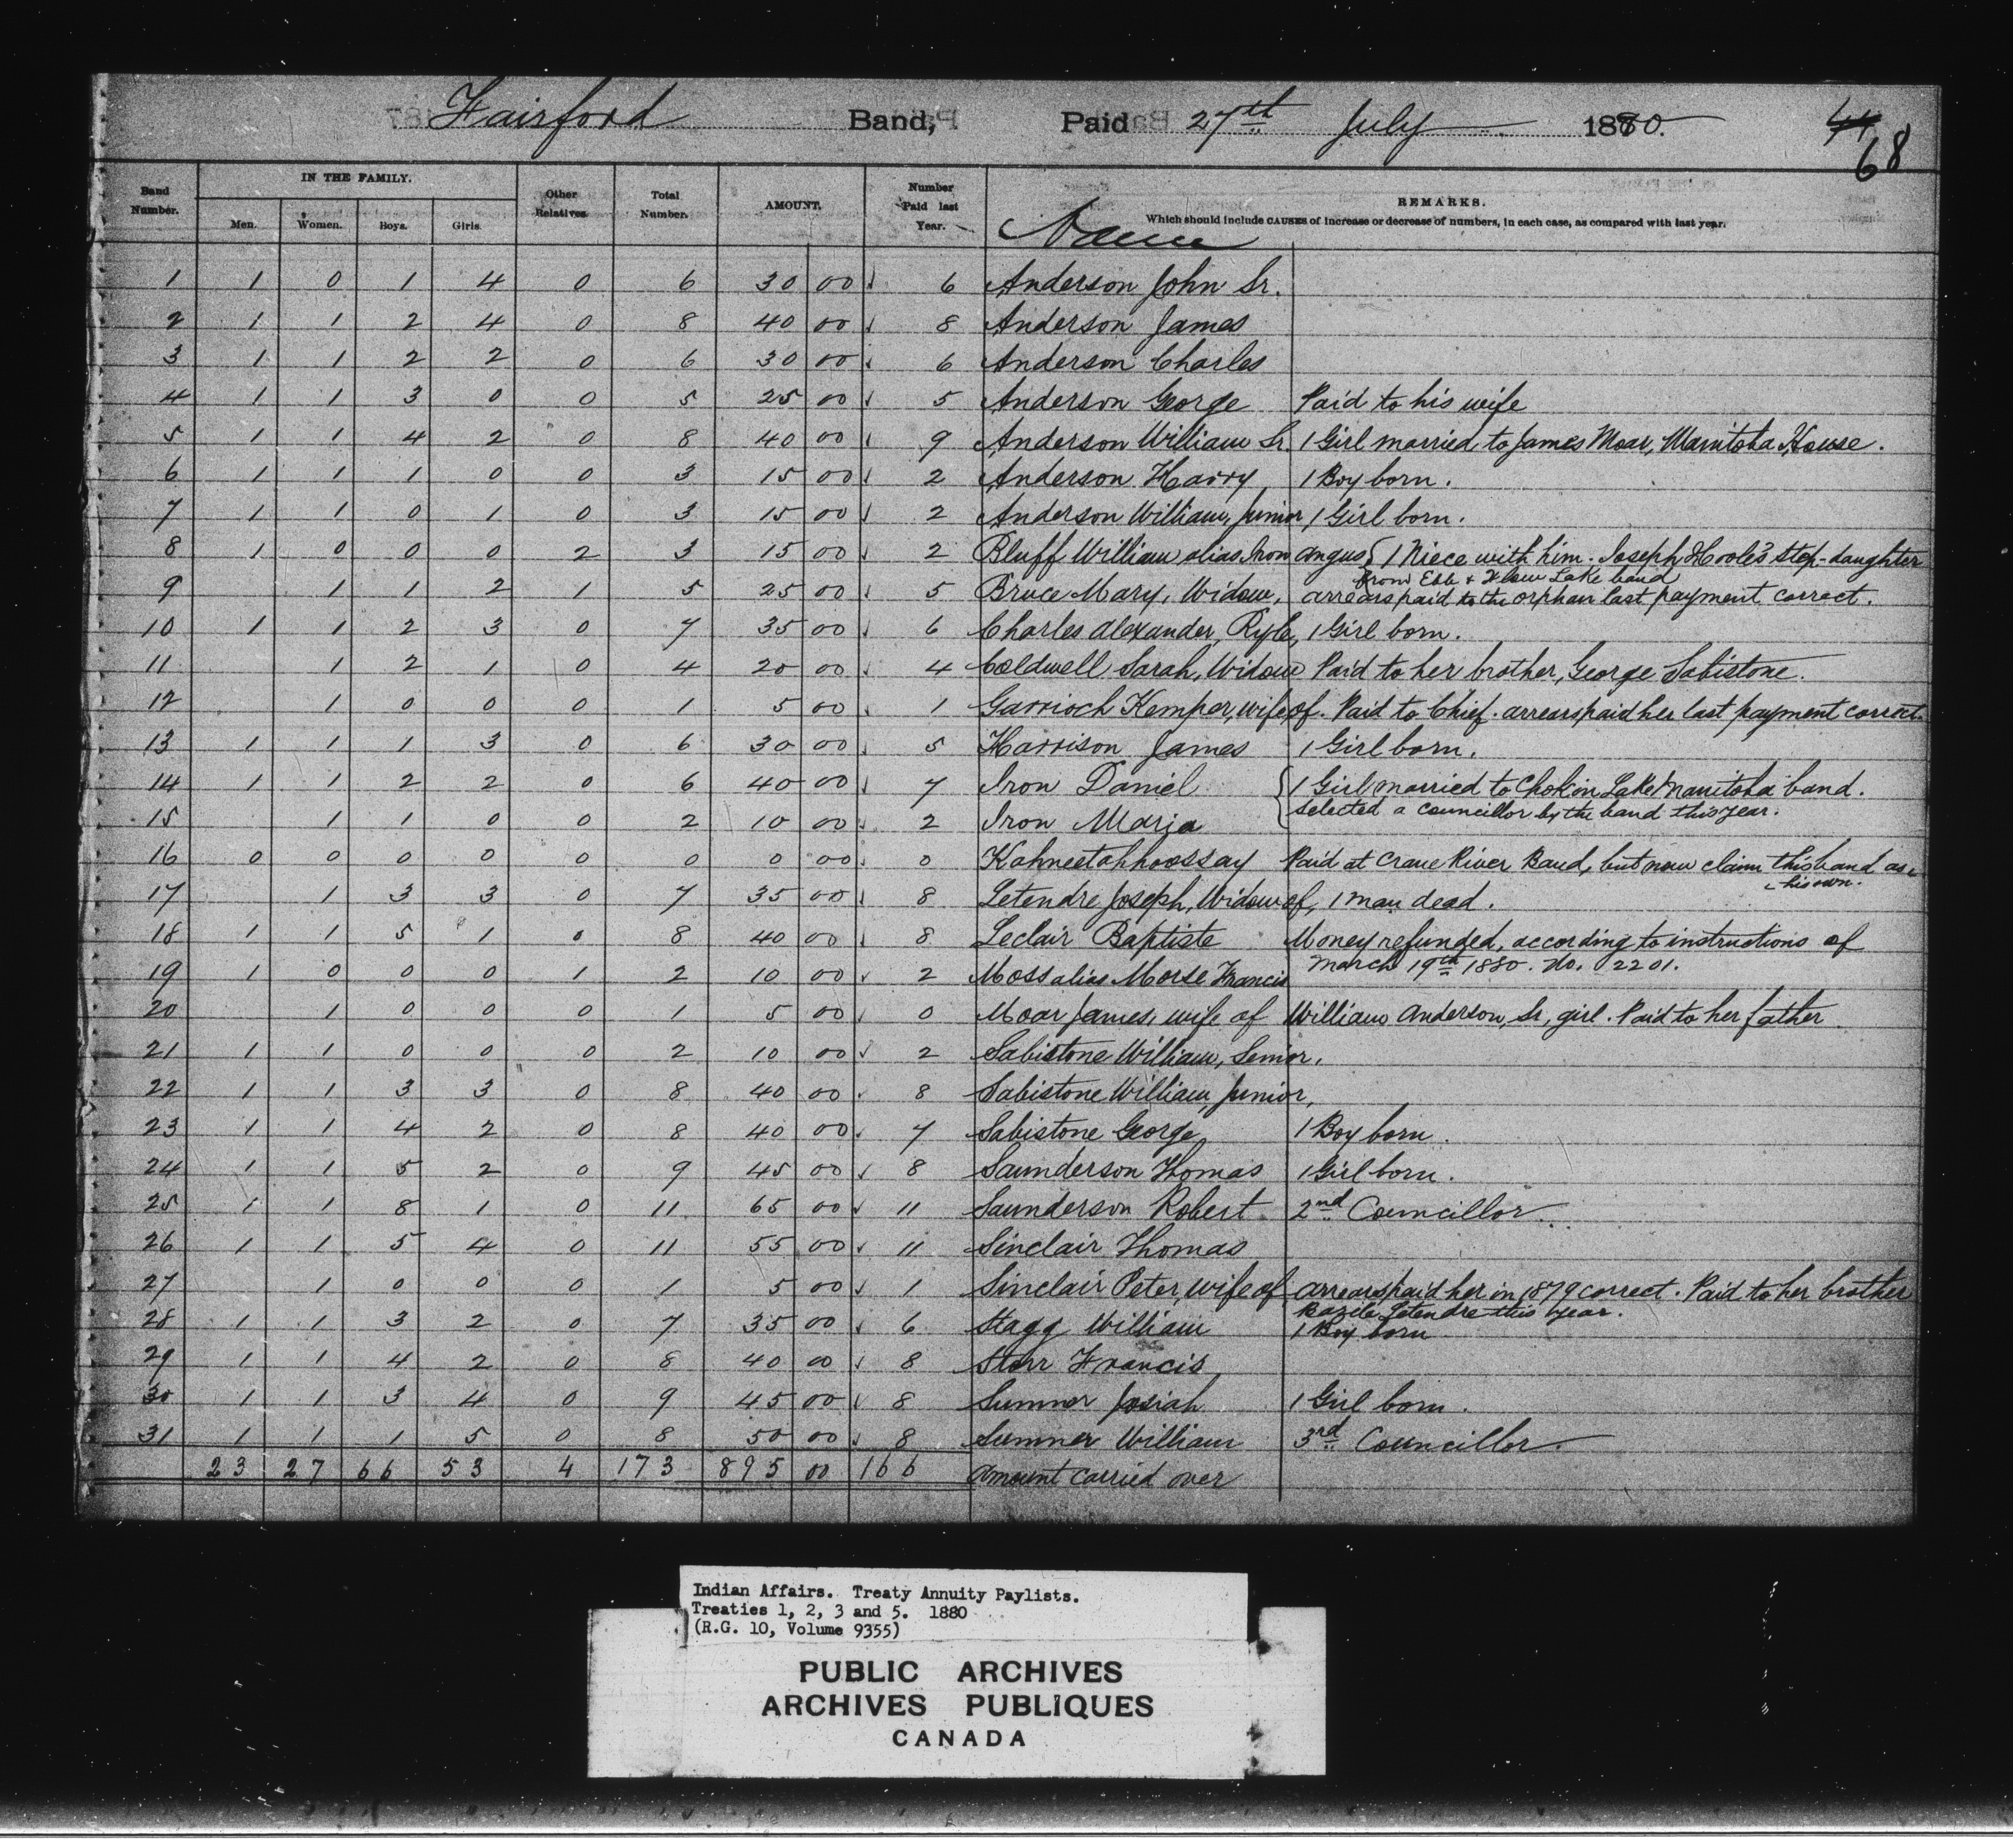 Fairford Band, Paid 27th July 1880.
44
68
Band Number. IN THE FAMILY. Other Relatives. Total Number. AMOUNT. Number Paid last Year. Name REMARKS.
Men. Women. Boys. Girls. Which should include CAUSES of increase or decrease of numbers, in each case, as compared with last year.
1 1 0 1 4 0 6 30 00 6 Anderson John Sr.
2 1 1 2 4 0 8 40 00 8 Anderson James
3 1 1 2 2 0 6 30 00 6 Anderson Charles
4 1 1 3 0 0 5 25 00 5 Anderson George Paid to his wife
5 1 1 4 2 0 8 40 00 9 Anderson William Sr. 1 Girl married to James Moar, Manitoba House.
6 1 1 1 0 0 3 15 00 2 Anderson Harry, 1 Boy born.
7 1 1 0 1 0 3 15 00 2 Anderson William, Junior, 1 Girl born.
8 1 0 0 0 2 3 15 00 2 Bluff William alias Iron Angus { 1 Niece with him. Joseph Hoole's Step-daughter
from Ebb & Flow Lake band
9 1 1 2 1 5 25 00 5 Bruce Mary, Widow, arrears paid to the orphan last payment correct.
10 1 1 2 3 0 7 35 00 6 Charles Alexander, Ryle, 1 Girl born.
11 1 2 1 0 4 20 00 4 Coldwell Sarah, Widow Paid to her brother, George Sabistone.
12 1 0 0 0 1 5 00 1 Garrioch Kemper, wife of. Paid to Chief. arrears paid her last payment correct.
13 1 1 1 3 0 6 30 00 5 Harrison James 1 Girl born.
14 1 1 2 2 0 6 40 00 7 Iron Daniel { 1 Girl married to Chokin Lake Manitoba band.
selected a councillor by the band this year.
15 1 1 0 0 2 10 00 2 Iron Maria
16 0 0 0 0 0 0 0 00 0 Kahneetahhoossay Paid at Crane River Band, but now claim this band as
his own.
17 1 3 3 0 7 35 00 8 Letendre Joseph, Widow of, 1 man dead.
18 1 1 5 1 0 8 40 00 8 Leclair Baptiste Money refunded, according to instructions of
March 19th 1880. No. 2201.
19 1 0 0 0 1 2 10 00 2 Moss alias Morse Francis
20 1 0 0 0 1 5 00 0 Moar James, wife of William Anderson, Sr, girl. Paid to her father.
21 1 1 0 0 0 2 10 00 2 Sabistone William, Senior.
22 1 1 3 3 0 8 40 00 8 Sabistone William, Junior,
23 1 1 4 2 0 8 40 00 7 Sabistone George, 1 Boy born.
24 1 1 5 2 0 9 45 00 8 Saunderson Thomas 1 Girl born.
25 1 1 8 1 0 11 65 00 11 Saunderson Robert 2nd Councillor.
26 1 1 5 4 0 11 55 00 11 Sinclair Thomas
27 1 0 0 0 1 5 00 1 Sinclair Peter, wife of arrears paid her in 1879 correct. Paid to her brother
Bazile Letendre this year.
28 1 1 3 2 0 7 35 00 6 Stagg William 1 Boy born
29 1 1 4 2 0 8 40 00 8 Storr Francis
30 1 1 3 4 0 9 45 00 8 Sumner Josiah 1 Girl born.
31 1 1 1 5 0 8 50 00 8 Sumner William 3rd Councillor.
23 27 66 53 4 173 895 00 166 Amount carried over
Indian Affairs. Treaty Annuity Paylists.
Treaties 1, 2, 3 and 5. 1880
(R.G. 10, Volume 9355)
PUBLIC ARCHIVES
ARCHIVES PUBLIQUES
CANADA